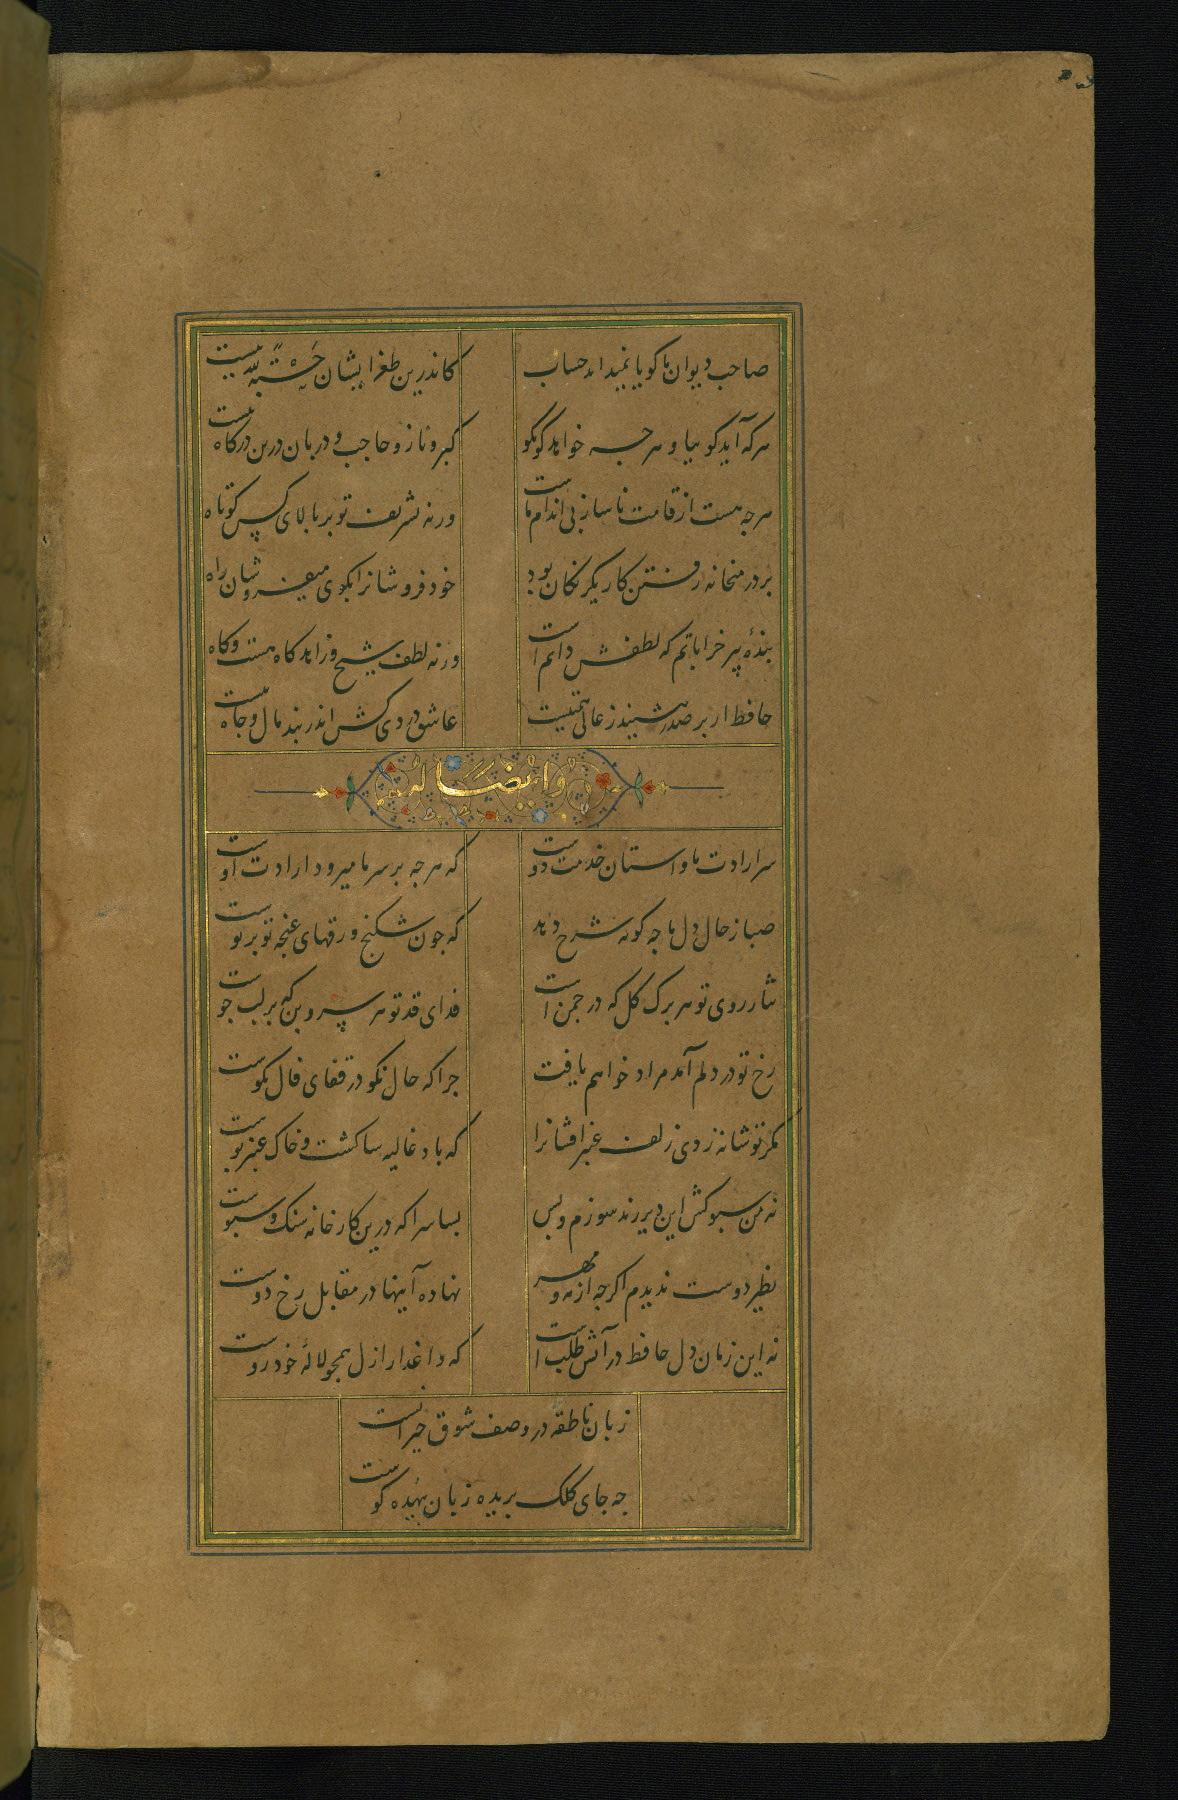 صاحب دیوان ما کویا نمیداند حساب
کاندرین طغرا نشان حسبة لله نیست
هرکه آید کو بیا و هرجه خواهد کو بکو
کبر و ناز و حاجب و دربان درین درکاه نیست
هرجه هست از قامت ناساز بی اندام ماست
ورنه تشریف تو بر بالای کس کوتاه
بر در میخانه رفتن کار یکرنکان بود
خود فروشانرا بکوی میفروشان راه
بندهٔ پیر خراباتم که لطفش دائم است
ورنه لطف شیخ و زاهد کاه هست و کاه
حافظ ار بر صدر ننشیند ز عالی همتیست
عاشق دردی کش اندر بند مال و جاه نیست
وایضاله
سر ارادت ما و استان خدمت دوست
که هرجه بر سر ما میرود ارادت اوست
صبا ز حال دل ما جه کونه شرح دهد
که جون شکنج ورقهای غنجه تو بر توست
نثار روی تو هر برک کل که در جمن است
فدای قد تو هر سرو بن که بر لب جوست
رخ تو در دلم آمد مراد خواهم یافت
جرا که حال نکو در قفای فال نکوست
مکر تو شانه زدی زلف عنبر افشانرا
که باد غالیه سا کشت و خاک عنبر بوست
نه من سبو کش این دیر رند سوزم و بس
بسا سرا که درین کارخانه سنک و سبوست
نظیر دوست ندیدم اکرجه از مه و مهر
نهاده آینها در مقابل رخ دوست
نه این زمان دل حافظ در آتش طلب است
که داغدار ازل همجو لالهٔ خودروست
زبان ناطقه در وصف شوق حیرانست
جه جای کلک بریده زبان بیهده کوست